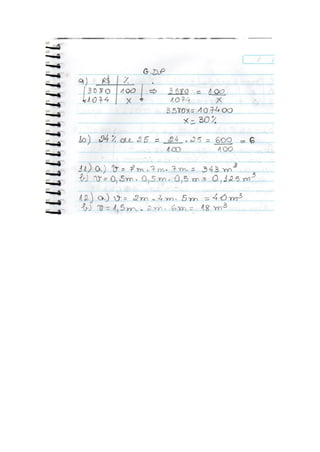 G.D.P
a) R$ | %
3580 | 100 ⇒ 3580 = 100
1074 | X 1074 X
3580x = 107400
x = 30%
b) 24% de 25 = 24/100 . 25 = 600/100 = 6
11) a) V = 7m . 7m . 7m = 343 m³
b) V = 0,5m . 0,5m . 0,5m = 0,125 m³
12) a) V = 2m . 4m . 5m = 40 m³
b) V = 1,5m . 2m . 6m = 18 m³